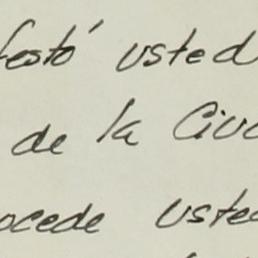 festó usted
de la Ciud
ocede usted